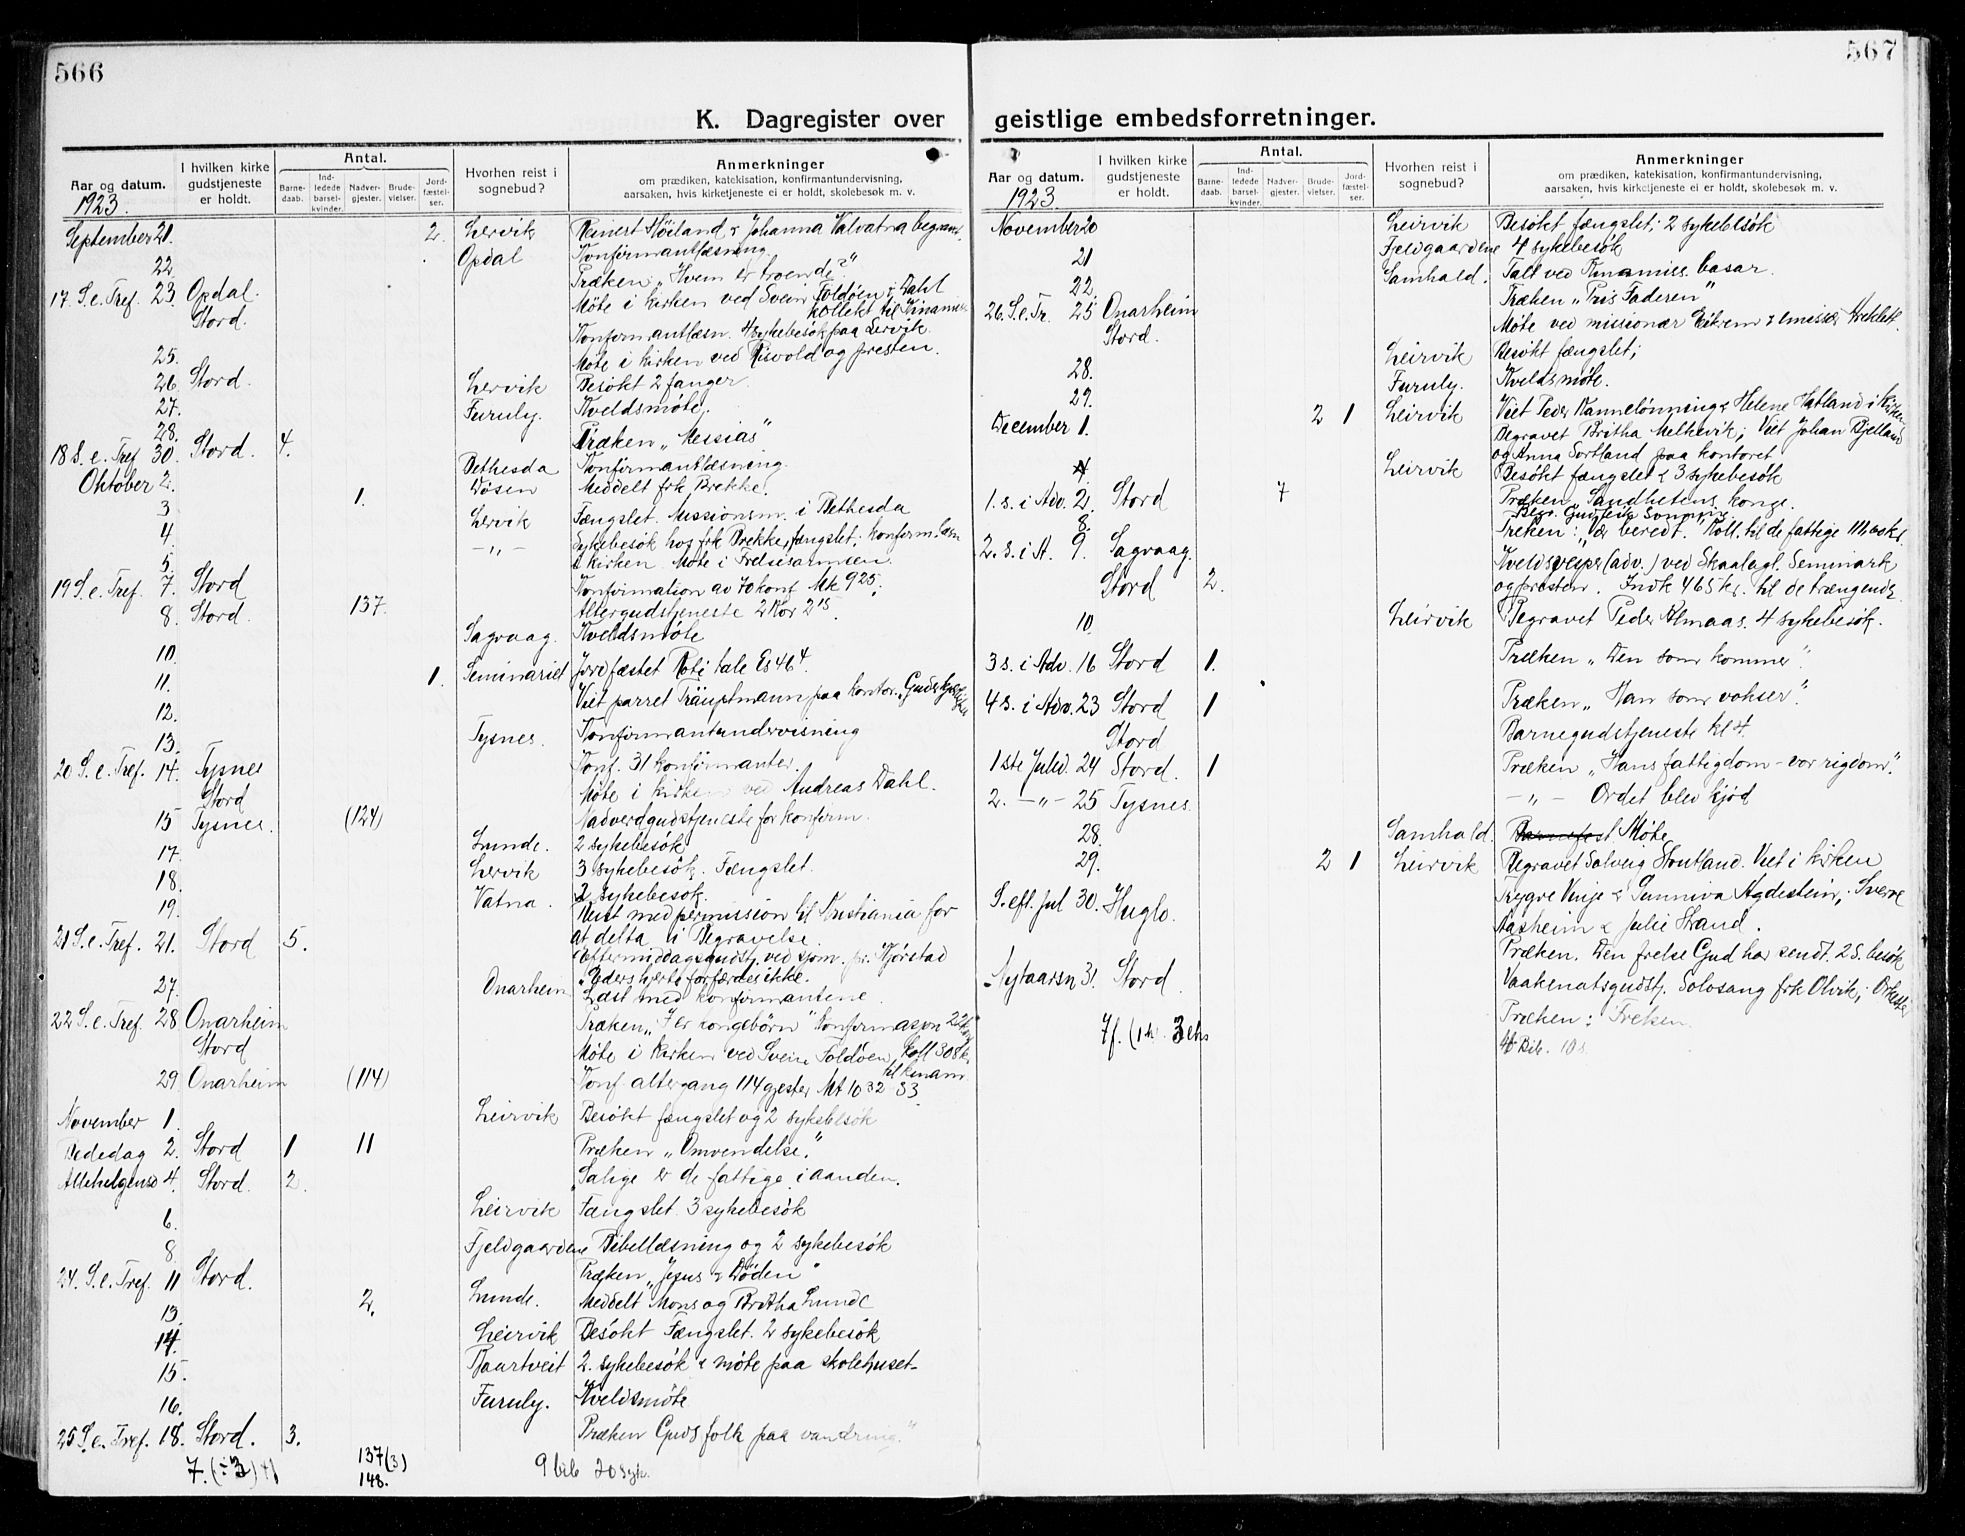 566
K. Dagregister over
Aar og datum.
I hvilken kirke gudstjeneste er holdt.
Antal.
Barne-daab.
Ind-ledede barsel-kvinder.
Nadver-gjester.
Brude-vielser.
Jord-fæstel-ser.
Hvorhen reist i sognebud?
Anmerkninger
om prædiken, katekisation, konfirmantundervisning,
aarsaken, hvis kirketjeneste ei er holdt, skolebesøk m. v.
1923.
September 21. 2. Lervik Reinert Høiland & Johanna Valvatna begravet.
22. Opdal Konfirmantlæsning.
17 S. e. Tref. 23. Opdal. Præken „Hvem er troende?"
Stord. Møte i kirken ved Svein Foldøen & Dahl
kollekt til Kinamis
25. Konfirmantlæsn. 4 sykebesøk paa Lervik.
26. Stord. Møte i kirken ved Risvold og presten.
27. Lervik Besøkt 2 fanger.
28. Furuly. Kveldsmøte.
18 S. e. Tref 30. Stord. 4. Præken „Messias"
Oktober 2. Bethesda Konfirmantlæsning.
3 1. Døsen Meddelt frk Brekke.
4. Lervik Fængslet. Missionsm. i Bethesda
5. –„– Sykebesøk hos frk Brekke, fængslet; konfirm.læsn
i kirken. Møte i Frelsesarmeen.
19 S. e. Tref. 7. Stord Konfirmation av 70 konf. Mk 9 25;
8. Stord. 137. Altergudstjeneste 2 Kor 2 15.
10. Sagvaag. Kveldsmøte
11. 1. Seminariet Jordfæstet tale Es 46 4
12. Viet parret paa kontor.
13. Tysnes. Konfirmantundervisning
20 S. e. Tref. 14. Tysnes Konf. 31 konfirmanter.
Stord Møte i kirken ved Andreas Dahl.
15 Tysnes. (124) Nadverdgudstjeneste for konfirm.
17. Lunde. 2 sykebesøk
18. Lervik 3 sykebesøk. Fængslet.
19. Vatna. 2 sykebesøk.
Reist med permission til Kristiania for
at delta i Begravelse.
21 S. e. Tref. 21. Stord 5. Eftermiddagsgudstj. ved sjøm. pr. Hjørstad
„Eders hjerte forfærdes ikke.
27. Onarheim Læst med konfirmantene.
22 S. e. Tref. 28 Onarheim Præken „I er kongebørn" Konfirmasjon 22
Stord Møte i kirken ved Svein Foldøen, koll 308 k
til kinam
29. Onarheim (114) Konf. altergang 114 gjester Mt 10 32-33.
November 1. Leirvik Besøkt fængslet og 2 sykebesøk
Bededag 2. Stord 1 11 Præken „Omvendelse."
Allehelgensd 4. Stord. 2. „Salige er de fattige i aanden.
6. Leirvik Fængslet. 3 sykebesøk
8. Fjeldgaardene Bibellæsning og 2 sykebesøk
24. S. e. Tref. 11 Stord. Præken „Jesus & Døden"
13. 2. Lunde. Meddelt Mons og Britha Lunde
14. Leirvik Besøkt Fængslet. 2 sykebesøk
15. 2. sykebesøk & møte paa skolehuset
16. Furuly. Kveldsmøte
25 S. e. Tref. 18. Stord. 3. Præken Guds folk paa vandring."
7. (÷3) 137 (3) 9 bib 20 syk.
148.
567
geistlige embedsforretninger.
Aar og datum.
I hvilken kirke gudstjeneste er holdt.
Antal.
Barne-daab.
Ind-ledede barsel-kvinder.
Nadver-gjester.
Brude-vielser.
Jord-fæstel-ser.
Hvorhen reist i sognebud?
Anmerkninger
om prædiken, katekisation, konfirmantundervisning,
aarsaken, hvis kirketjeneste ei er holdt, skolebesøk m. v.
1923
November 20 Leirvik Besøkt fængslet; 2 sykebesøk
21 Fjeldgaardene 4 sykebesøk
22. Samhald. Talt ved Kinamiss. basar.
26. S. e. Tr. 25 Onarheim Præken „Pris Faderen"
Stord. Møte ved missionær Eikrem & emissær
28. Leirvik Besøkt fængslet;
29. Furuly. Kveldsmøte.
December 1. 2 1 Leirvik Viet Peder Kannelønning & Helene Hatland i kirken
Begravet Britha Melkevik; Viet Johan Bjelland
og Anna Sortland paa kontoret
4. Leirvik Besøkt fængslet & 3 sykebesøk
1. s. i Adv. 2. Stord 7 Præken Sandhetens konge.
8.
2. s. i A. 9. Sagvaag. Præken: „Vær beredt." Koll. til de fattige
Stord 2. Kveldsvesper (adv.) ved Skaalagl. Seminark
og presten. Indk 465 kr. til de trængende.
10. Leirvik Begravet Peder Almaas. 4 sykebesøk.
3 s. i Adv. 16 Stord 1. Præken „Den som kommer".
4 s. i Adv. 23 Stord 1 Præken „Han som vokser".
Stord Barnegudstjeneste kl 4.
1ste Juled. 24 Stord. 1 Præken „Hans fattigdom – vor rigdom".
2. –„– 25 Tysnes. –„– Ordet blev kjød
28. Samhald. Møte
29. 2 1 Leirvik Begravet Solveig Hontland. Viet i kirken
Trygve Vinje & Gunniva Agdestein, Sverre
Aasheim & Julie Strand.
S. eft. Jul 30. Huglo. Præken. Den frelse Gud har sendt. 2 S. besøk
Nytaarsn 31. Stord. Vaakenatsgudstj. Solosang frk Olvik;
Præken: Frelsen
7f. 3 10 s